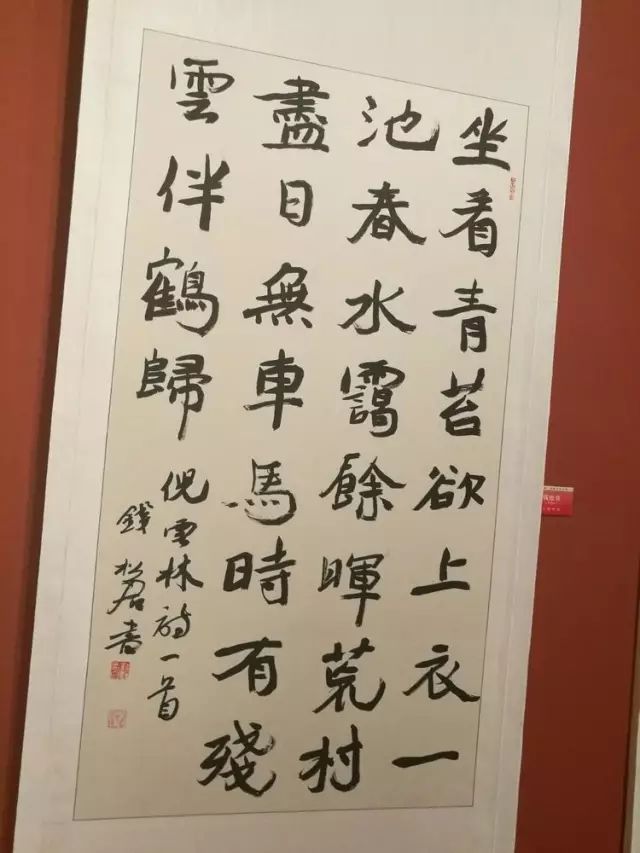 坐看青苔欲上衣一
池春水靄餘暉荒村
盡日無車馬時有殘
雲伴鶴歸
倪雲林詩一首
錢松嵒書